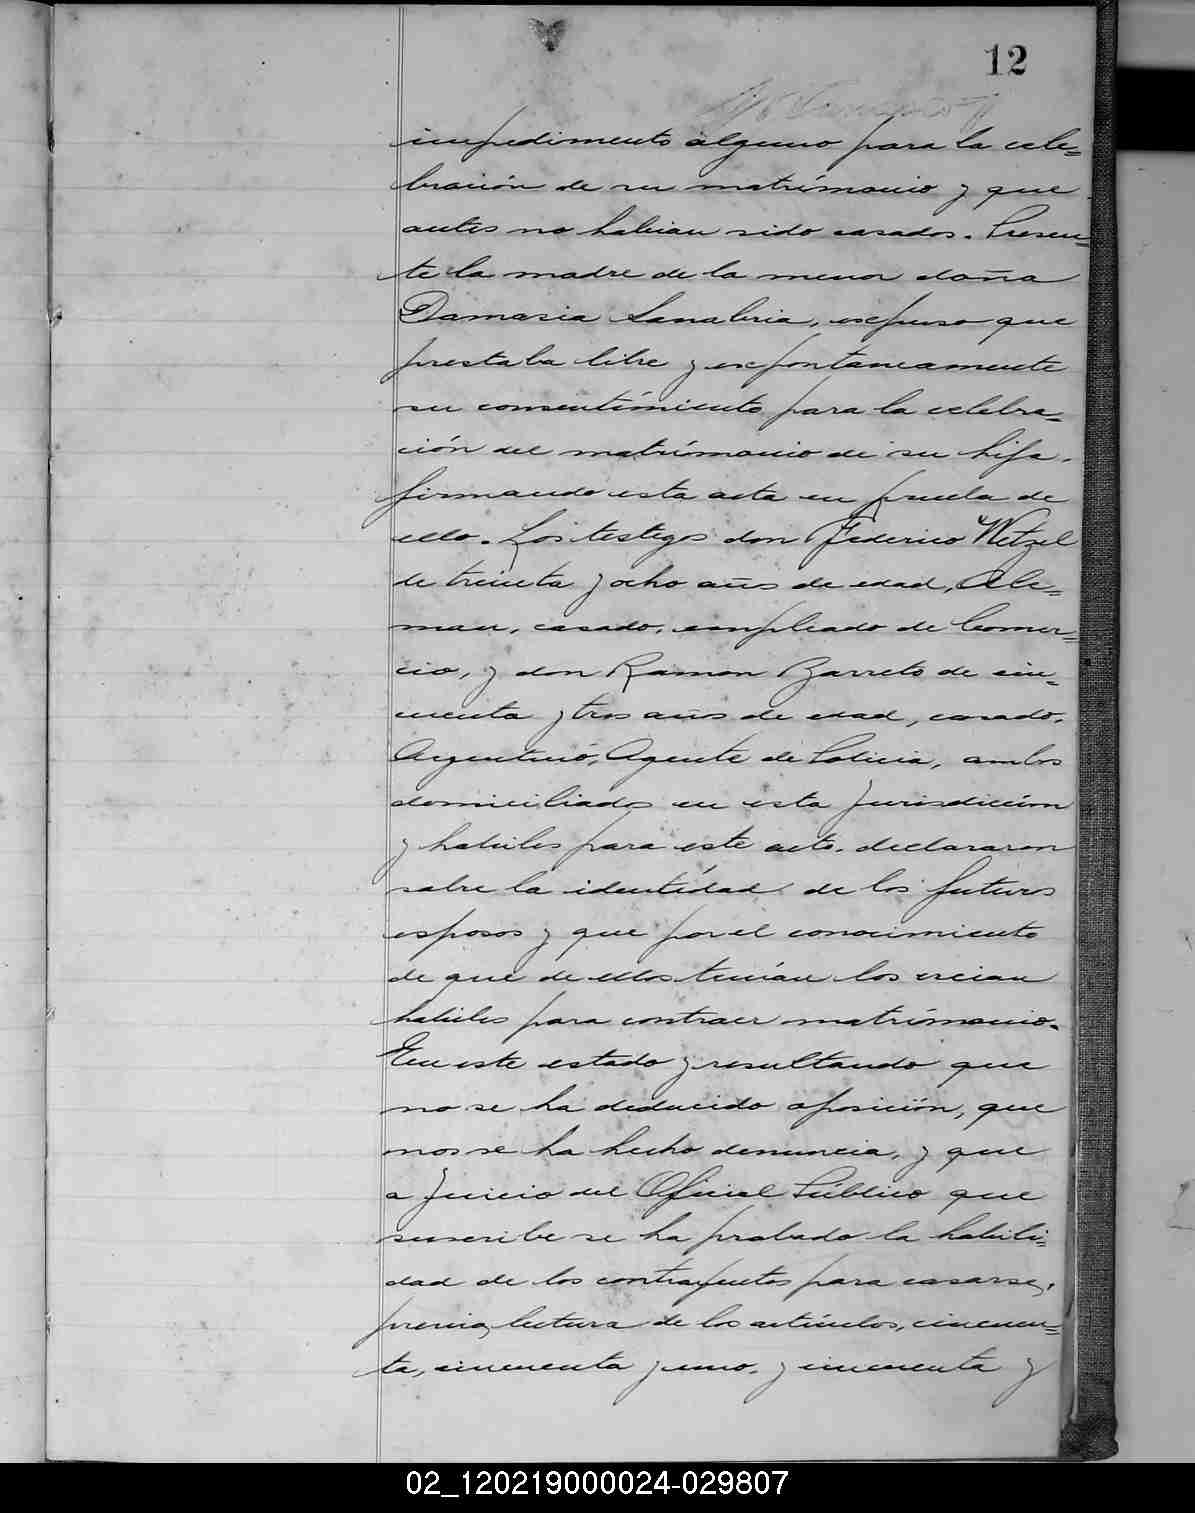 12
impedimento alguno para la cele=
bración de su matrimonio y que
antes no habian sido casados. Presen=
te la madre de la menor doña
Damasia Sanabria, expuso que
prestaba libre y expontaneamente
su consentimiento para la celebra=
ción del matrimonio de su hija,
firmando esta acta en prueba de
ello. Los testigos don Federico Wetzel
de treinta y ocho años de edad, Ale=
man, casado, empleado de Comer=
cio, y don Ramon Barreto de cin=
cuenta y tres años de edad, casado,
Argentino, Agente de Policia, ambos
domiciliados en esta jurisdicción
y habiles para este acto, declararon
sobre la identidad de los futuros
esposos y que por el conocimiento
de que de ellos tenian los creian
habiles para contraer matrimonio.
En este estado y resultando que
no se ha deducido oposición, que
no se ha hecho denuncia, y que
a juicio del Oficial Público que
suscribe se ha probado la habili=
dad de los contrayentes para casarse,
previa lectura de los articulos, cincuen=
ta, cincuenta y uno, y cincuenta y
02_120219000024-029807